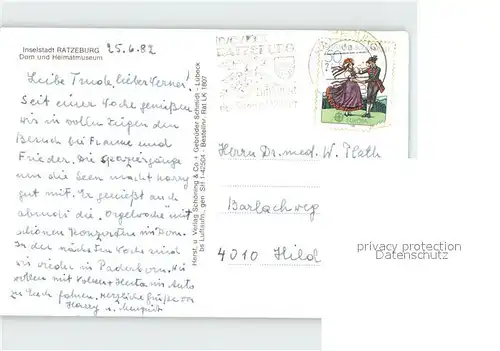 Inselstadt RATZEBURG
Dom und Heimatmuseum
25.6.82
Liebe Trude, lieber Werner!
Seit einer Woche genießen
wir in vollen Zügen den
Besuch bei und
Frieder. Die Spaziergänge
um die Seen macht Harry
gut mit. Er genießt auch
abends die Orgelwoche mit
schönen Konzerten im Dom.
In der nächsten Woche sind
wir wieder in Paderborn.
wollen mit + Herta im Auto
zu Euch fahren. Herzliche Grüße von
Harry u.
Herst. u. Verlag Schöning & Co + Gebrüder Schmidt · Lübeck
bs Luftaufn., gen. SH 1-42504 · Bestellnr. Rat LK 1607
RATZEBURG
Herrn Dr. med. W. Plath
Barlachweg
4010 Hild
privacy protection
Datenschutz